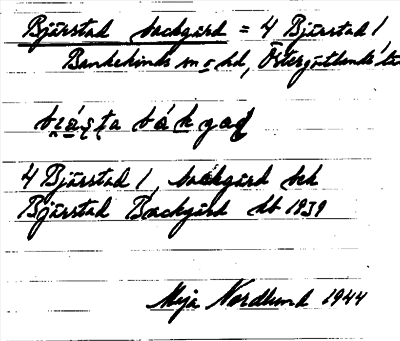 Bjärstad backgård = 4 Bjärstad /
Bankekinds sn o hd, Östergötlands
4 Bjärstad /, backgård
Bjärstad Backgård Jb 1939
Maja Nordlund 1944